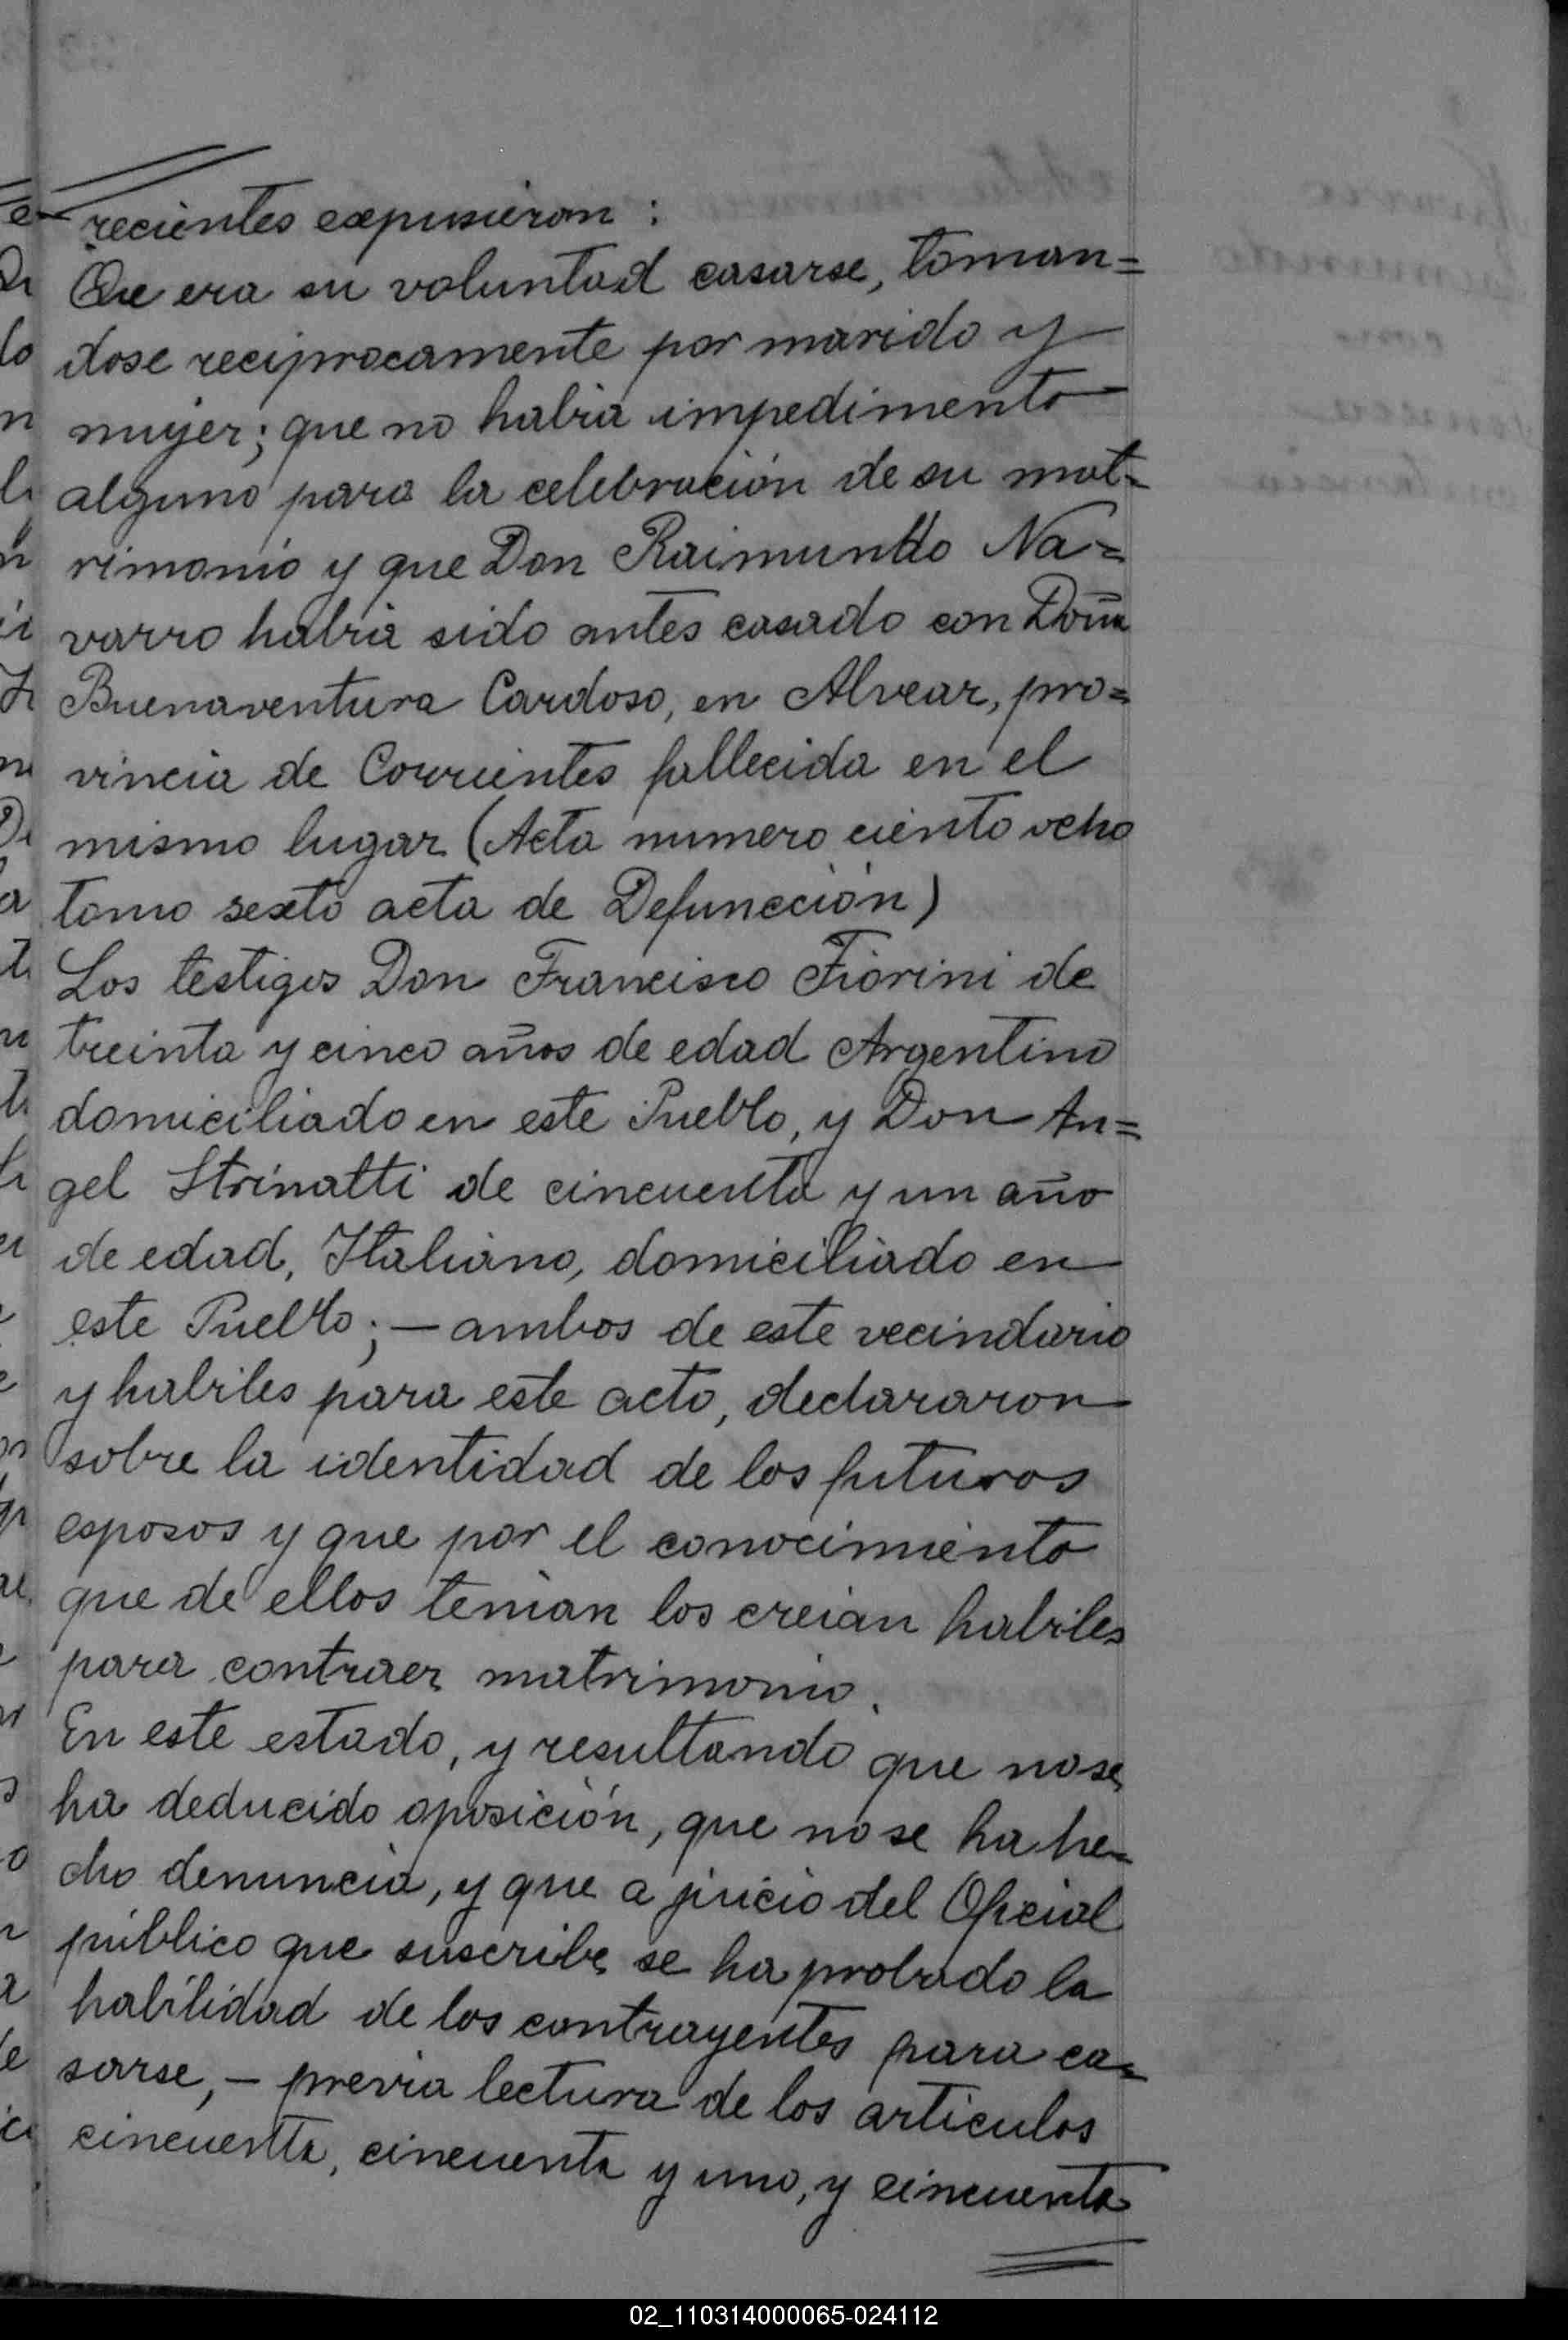 recientes expusieron :
Que era su voluntad casarse, toman=
dose reciprocamente por marido y
mujer; que no habia impedimento
alguno para la celebración de su mat-
rimonio y que Don Raimundo Na=
varro habia sido antes casado con Doña
Buenaventura Cardoso, en Alvear, pro=
vincia de Corrientes fallecida en el
mismo lugar (Acta numero ciento ocho
tomo sexto acta de Defunción)
Los testigos Don Francisco Fiorini de
treinta y cinco años de edad Argentino
domiciliado en este Pueblo, y Don An=
gel Strinatti de cincuenta y un año
de edad, Italiano, domiciliado en
este Pueblo; — ambos de este vecindario
y habiles para este acto, declararon
sobre la identidad de los futuros
esposos y que por el conocimiento
que de ellos tenian los creian habiles
para contraer matrimonio.
En este estado, y resultando que no se
ha deducido oposición, que no se ha he-
cho denuncia, y que a juicio del Oficial
público que suscribe se ha probado la
habilidad de los contrayentes para ca=
sarse, — previa lectura de los articulos
cincuenta, cincuenta y uno, y cincuenta
02_110314000065-024112